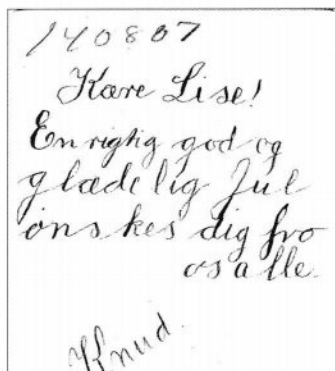 140807
Kære Lise!
En rigtig god og
glædelig Jul
ønskes dig fra
os alle.
Knud.